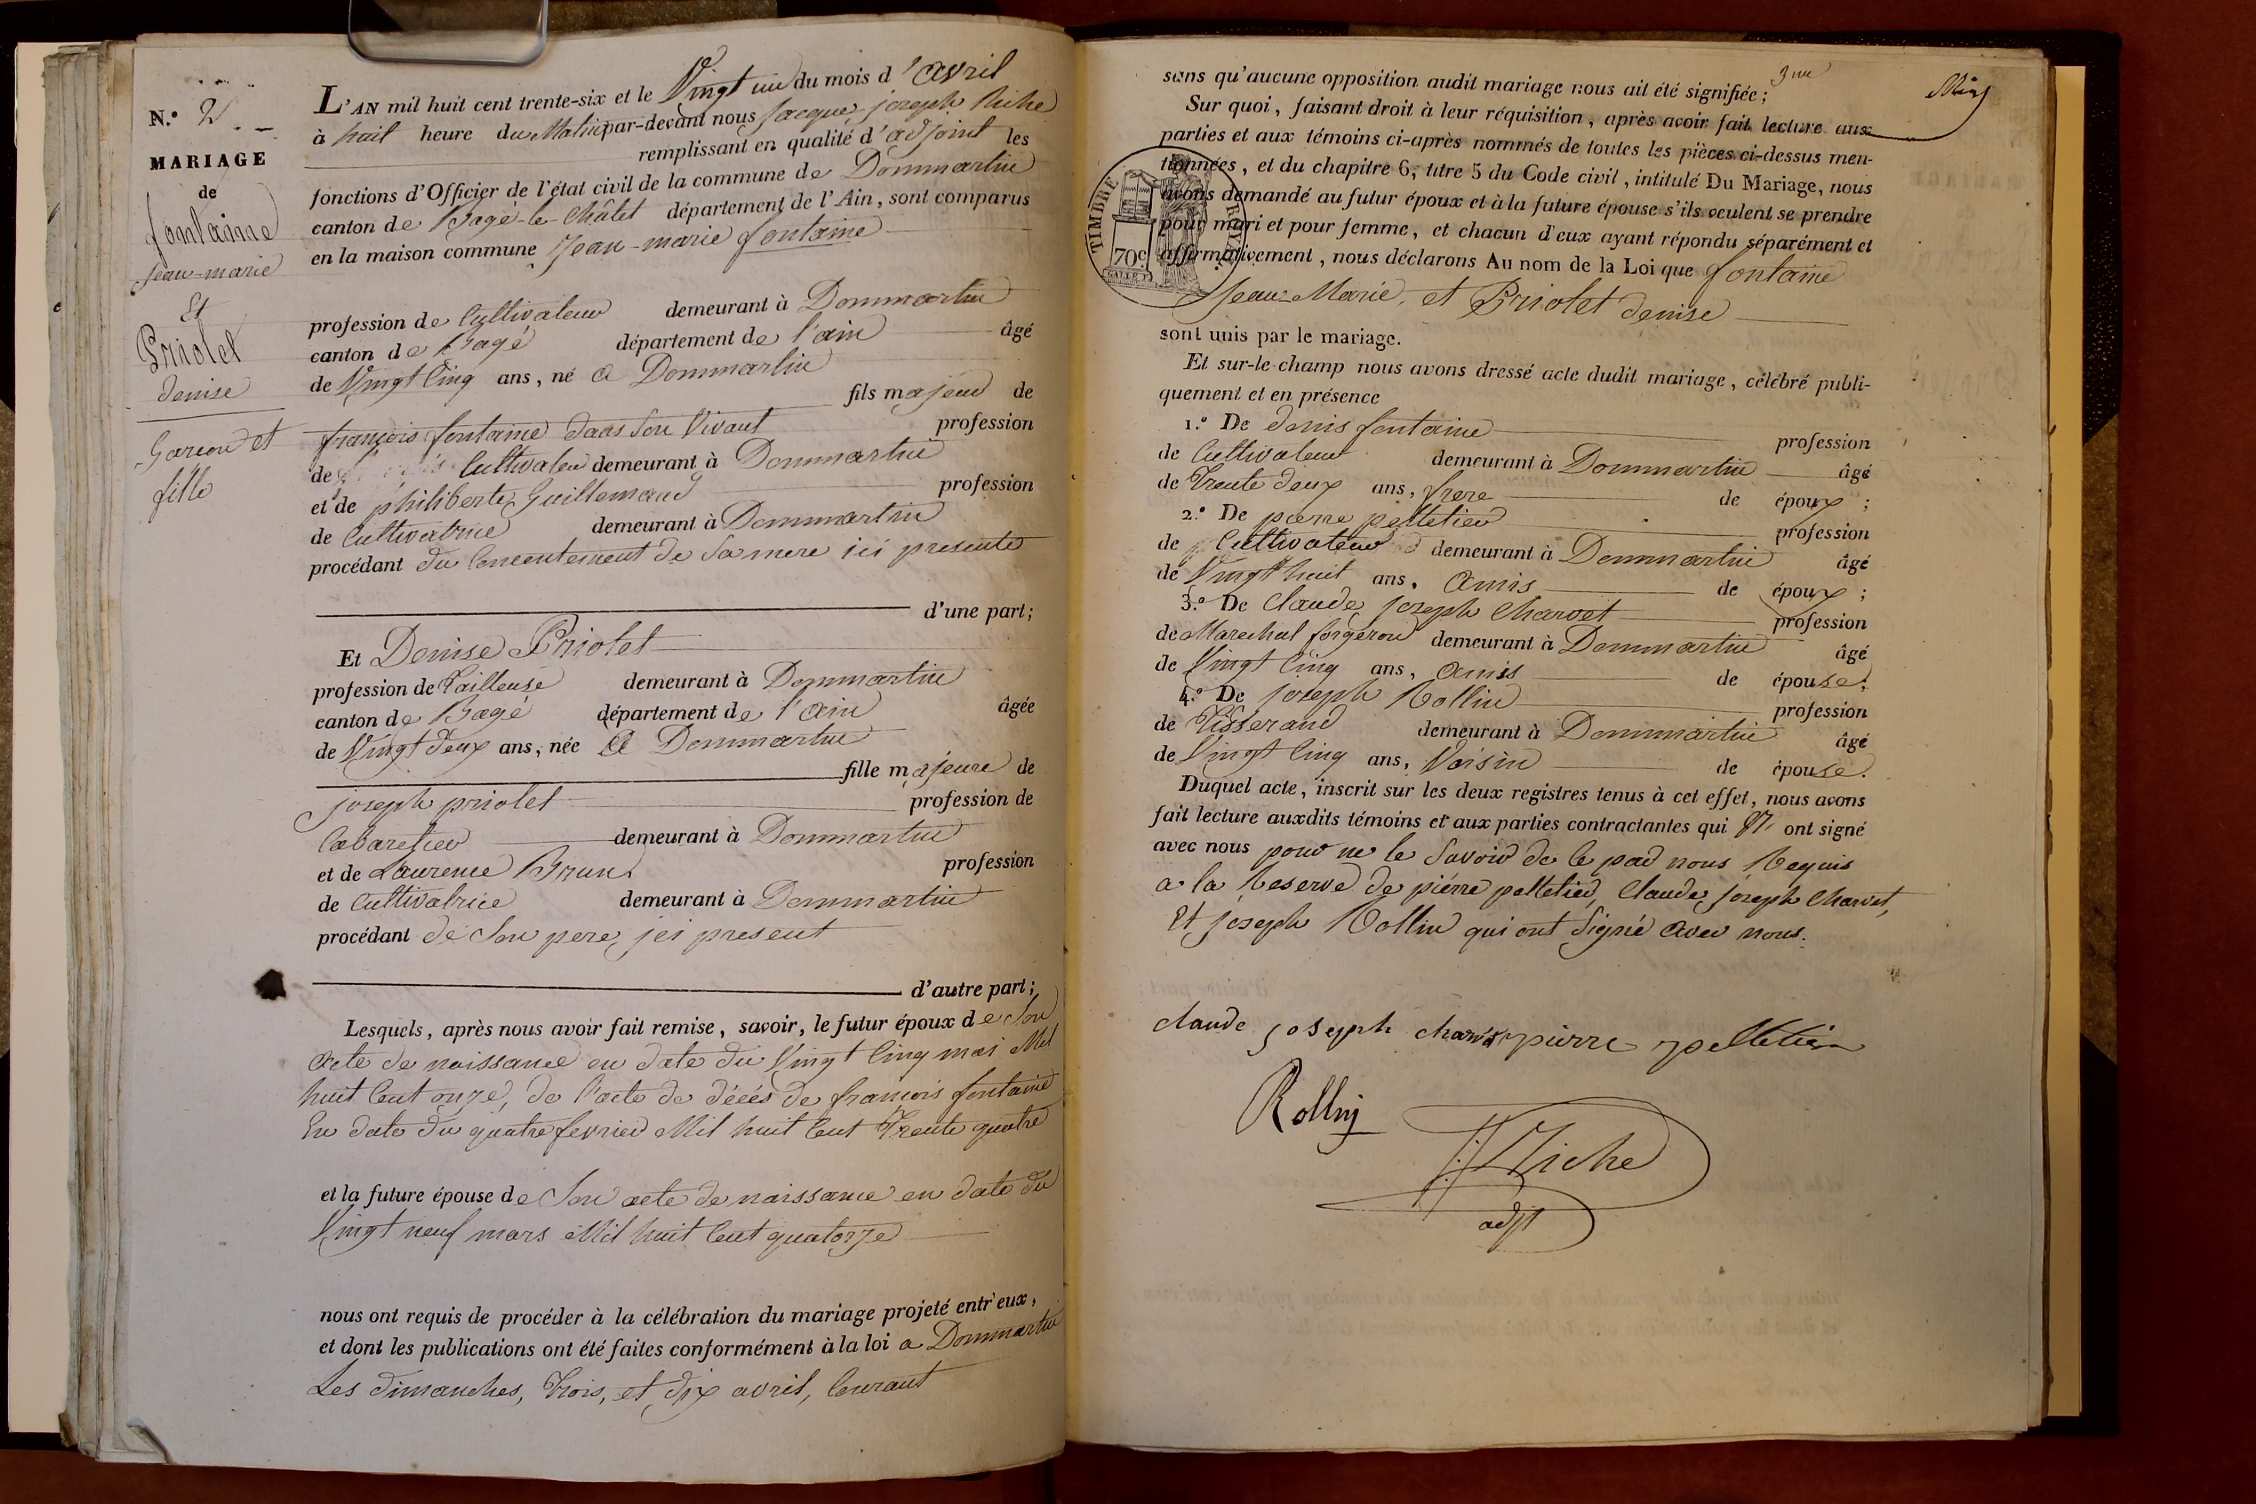 N.º 2.
MARIAGE
de
fontaine
Jean-marie
Et
Priolet
denise
Garcon et
fille
L'AN mil huit cent trente-six et le Vingt un du mois d'avril
à huit heure du Matin par-devant nous Jacque joseph Riche
remplissant en qualité d'adjoint les
fonctions d'Officier de l'état civil de la commune de Dommartin
canton de Bagé-le-Châtel département de l'Ain, sont comparus
en la maison commune Jean-marie fontaine
profession de Cultivateur demeurant à Dommartin
canton de Bagé département de l'ain âgé
de Vingt Cinq ans, né a Dommartin
fils majeur de
françois fontaine dans son Vivant profession
de Cultivateur demeurant à Dommartin
et de philiberte Guillemaud profession
de Cultivatrice demeurant à Dommartin
procédant du Concentement de Sa mere ici presente
d'une part;
Et Denise Priolet
profession de Tailleuse demeurant à Dommartin
canton de Bagé département de l'ain âgée
de Vingt deux ans, née a Dommartin
fille majeure de
joseph priolet profession de
Cabaretier demeurant à Dommartin
et de Laurence Brun profession
de Cultivatrice demeurant à Dommartin
procédant de Son pere jci present
d'autre part;
Lesquels, après nous avoir fait remise, savoir, le futur époux de Son
acte de naissance en date du Vingt Cinq mai Mil
huit Cent onze, de l'acte de décés de françois fontaine
En date du quatre fevrier Mil huit Cent Trente quatre
et la future épouse de Son acte de naissance en date du
Vingt neuf mars Mil huit Cent quatorze
nous ont requis de procéder à la célébration du mariage projeté entr'eux,
et dont les publications ont été faites conformément à la loi a Dommartin
Les dimanches, Trois, et dix avril, Courant
sans qu'aucune opposition audit mariage nous ait été signifiée;
Sur quoi, faisant droit à leur réquisition, après avoir fait lecture aux
parties et aux témoins ci-après nommés de toutes les pièces ci-dessus men-
tionnées, et du chapitre 6, titre 5 du Code civil, intitulé Du Mariage, nous
avons demandé au futur époux et à la future épouse s'ils veulent se prendre
pour mari et pour femme, et chacun d'eux ayant répondu séparément et
affirmativement, nous déclarons Au nom de la Loi que fontaine
Jean-Marie, et Priolet denise
sont unis par le mariage.
Et sur-le-champ nous avons dressé acte dudit mariage, célébré publi-
quement et en présence
1.º De denis fontaine profession
de Cultivateur demeurant à Dommartin âgé
de Trente deux ans, frere de époux;
2.º De pierre pelletier profession
de Cultivateur demeurant à Dommartin âgé
de Vingt huit ans, amis de époux;
3.º De Claude joseph Charvet profession
de Marechal forgeron demeurant à Dommartin âgé
de Vingt Cinq ans, amis de épouse;
4.º De joseph Rollin profession
de Tisserand demeurant à Dommartin âgé
de Vingt Cinq ans, Voisin de épouse.
Duquel acte, inscrit sur les deux registres tenus à cet effet, nous avons
fait lecture auxdits témoins et aux parties contractantes qui ont signé
avec nous pour ne le Savoir de Ce par nous Requis
a la Reserve de piérre pelletier, Claude joseph Charvet,
Et joseph Rollin qui ont Signé avec nous.
TIMBRE ROYAL
70c
claude joseph charvet pierre pelletier
Rollin
Riche
adjt